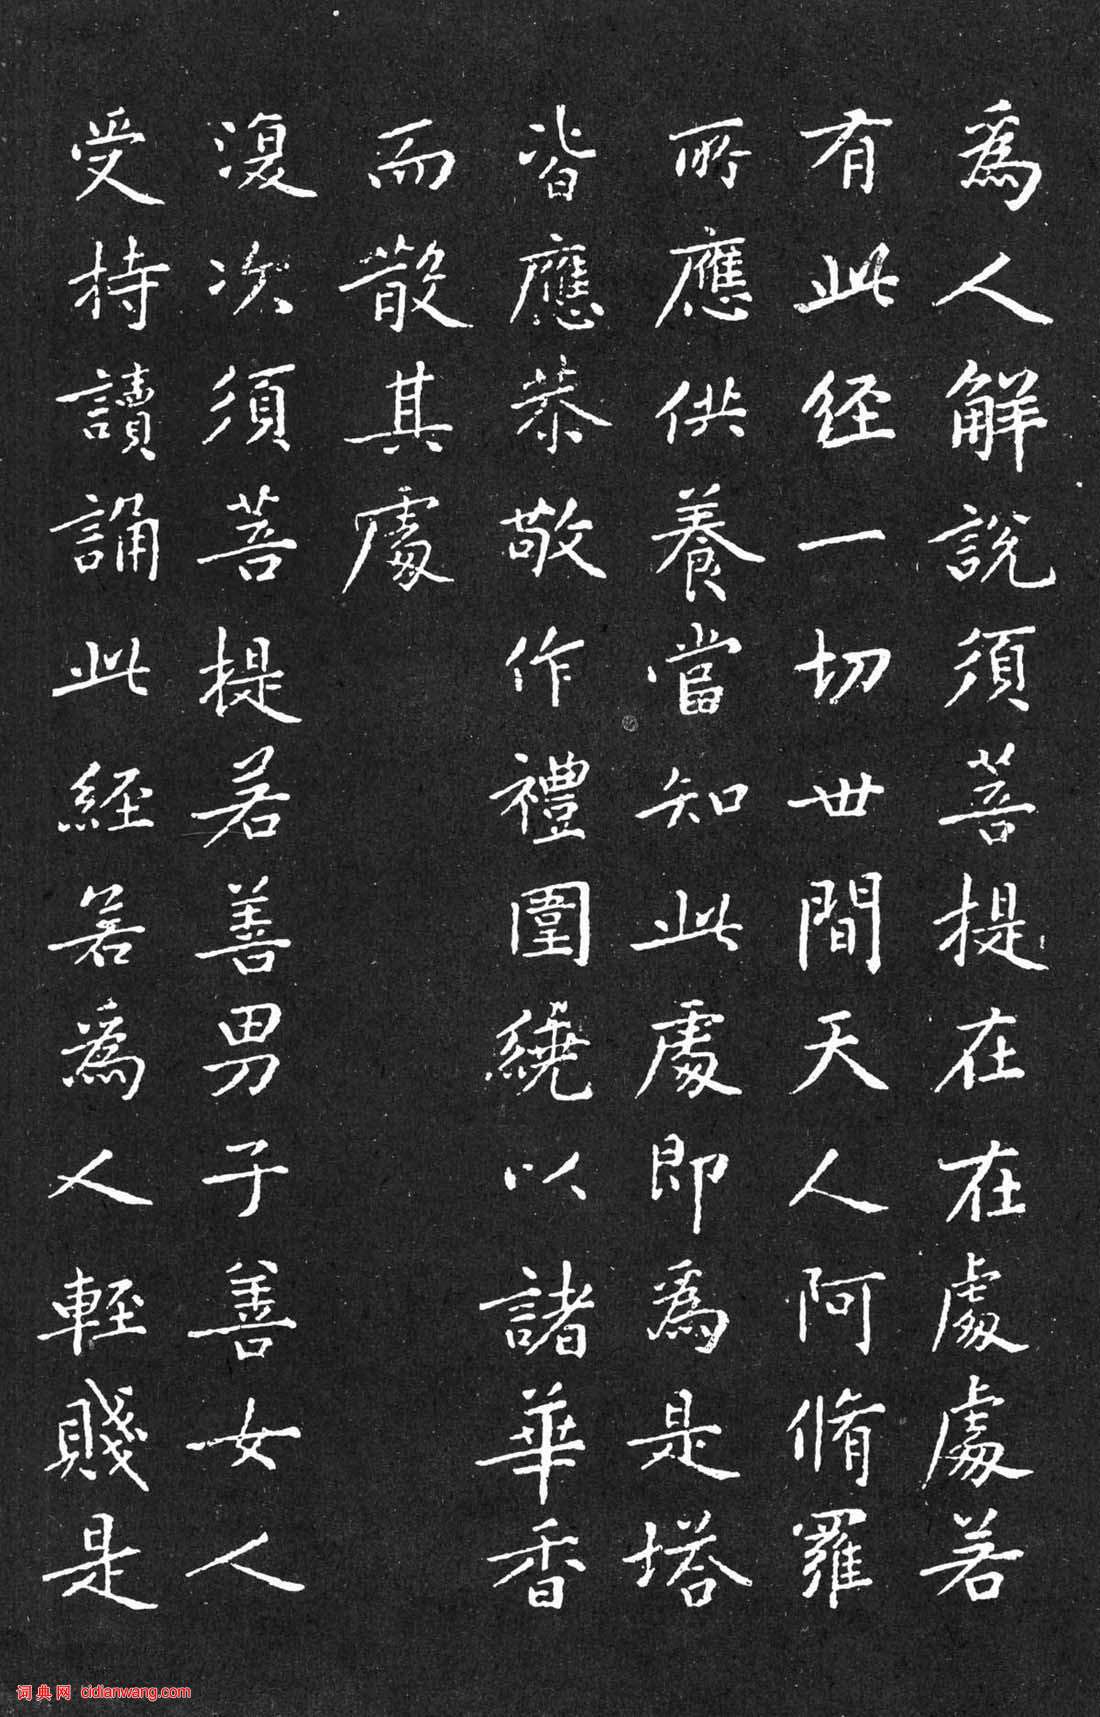 為人解說須菩提在在處處若
有此経一切世間天人阿脩羅
所應供養當知此處即為是塔
皆應恭敬作禮圍繞以諸華香
而散其處
復次須菩提若善男子善女人
受持讀誦此經若為人輕賤是
词典网 cidianwang.com